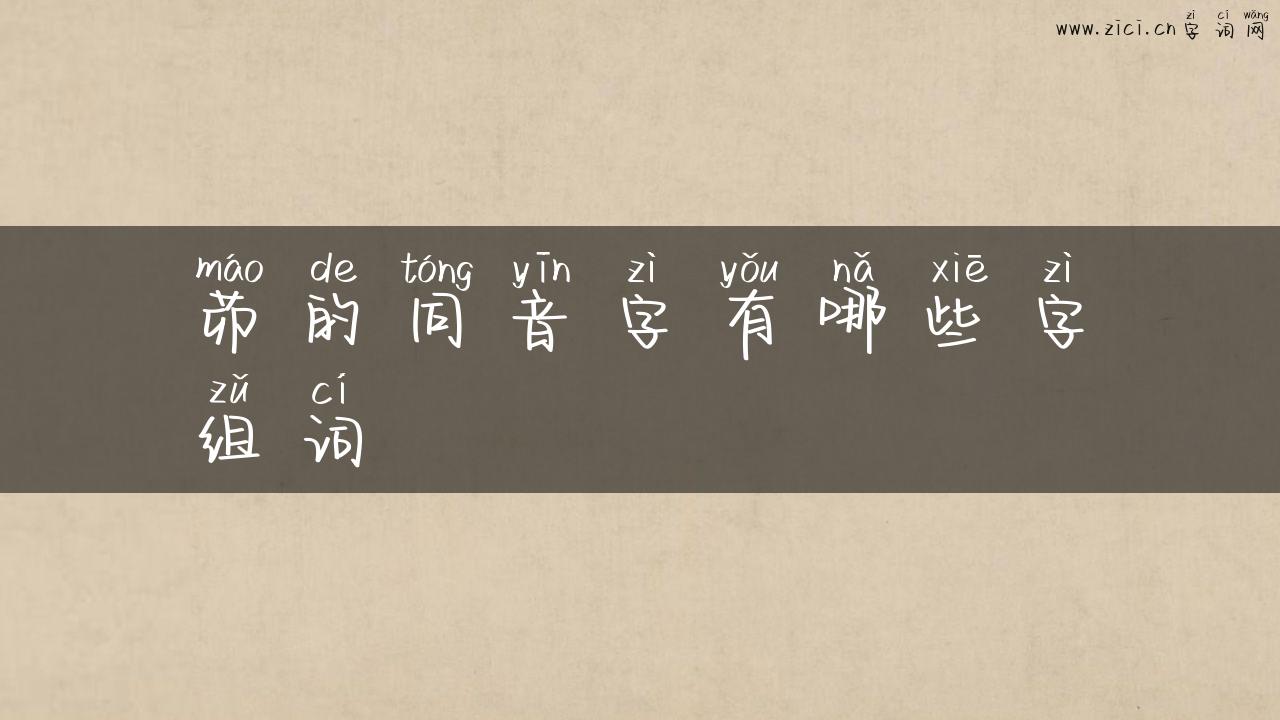 zì cí wǎng
www.zici.cn 字词网
máo de tóng yīn zì yǒu nǎ xiē zì
茆的同音字有哪些字
zǔ cí
组词